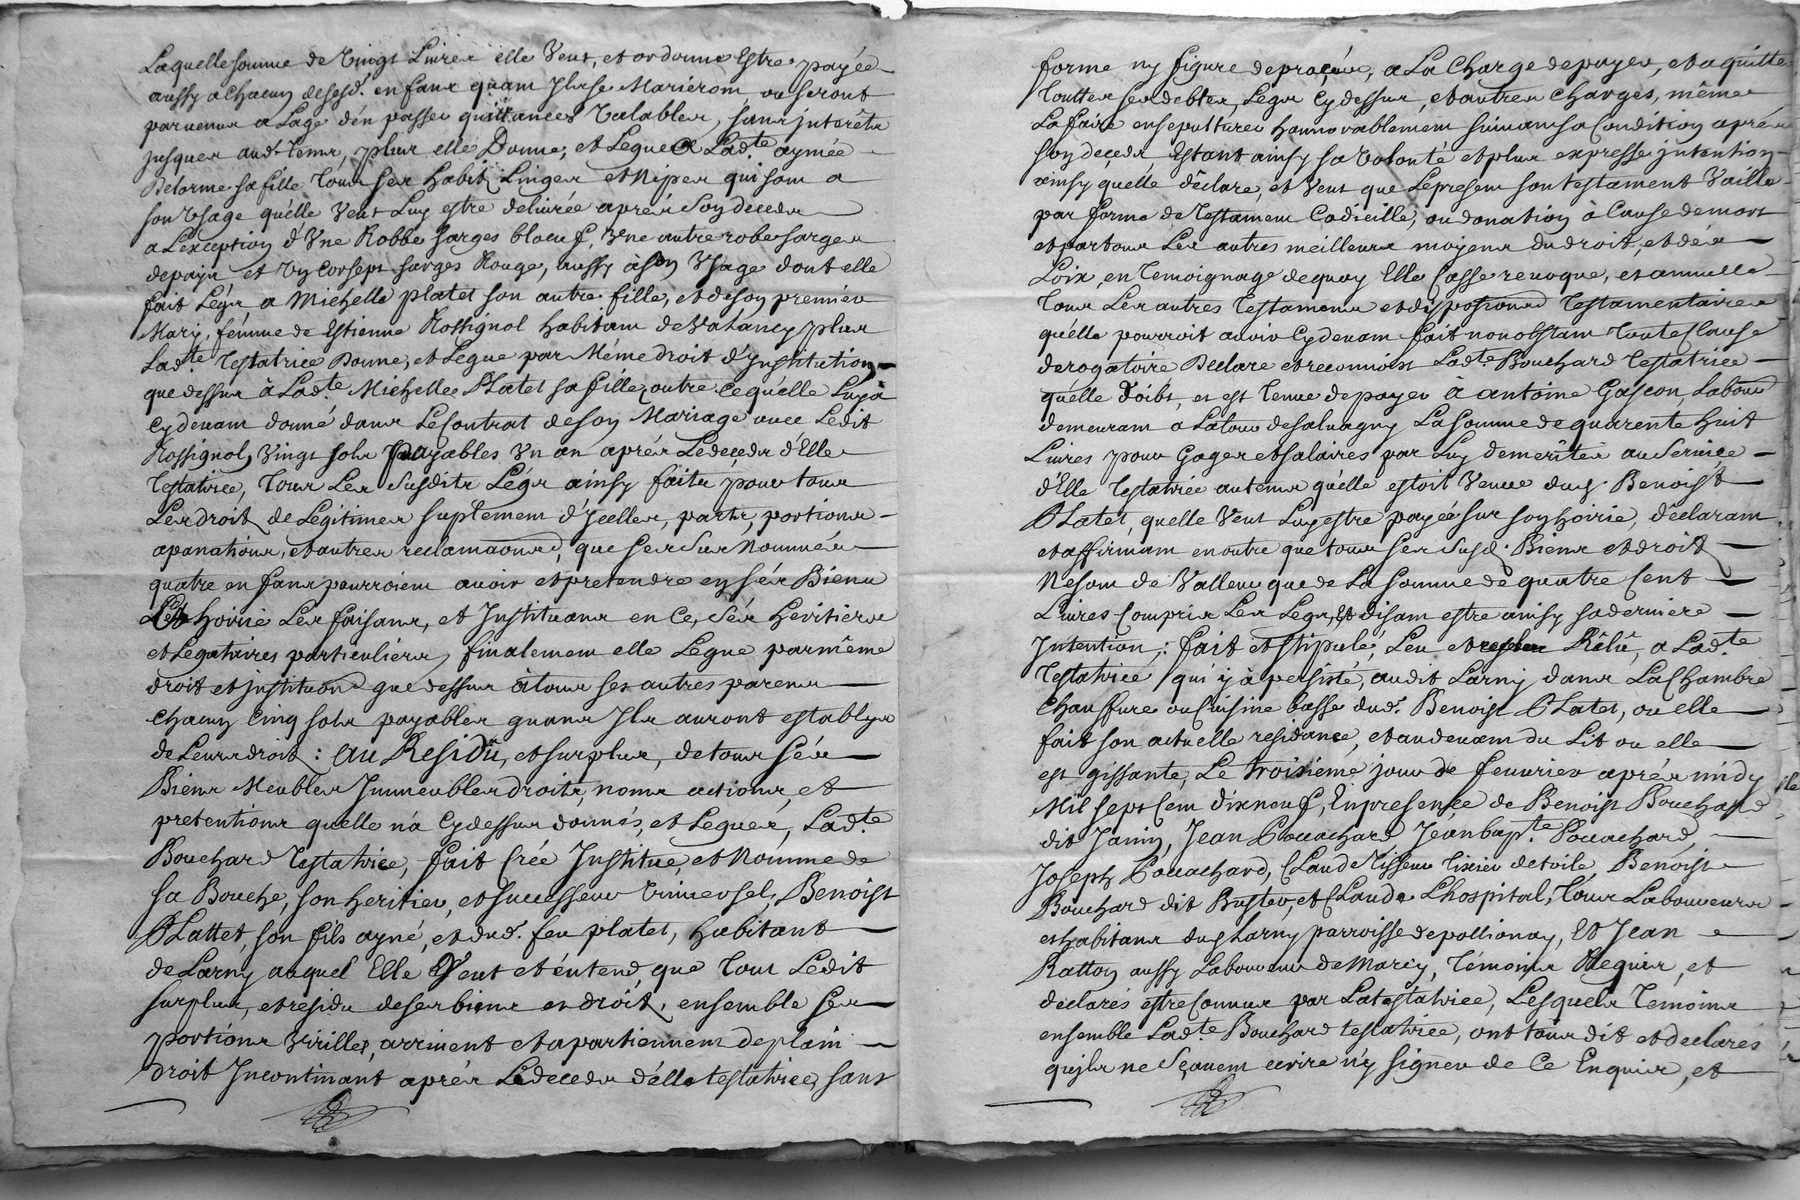 Laquelle somme de Vingt Livres elle Veut, et ordonne Estre payée
aussy a Chacun desesd. enfans quam Ilsse Marieront ou seront
parvenus a Lage dén passer quittances Valables, sans interêts
jusques aud. tems, plus elle Donne, et Legue a Lad.te aymée
Delorme sa fille tous ses habit Linges et Nipes qui sont a
son Usage quélle Veut Luy estre delivrée aprés son deceds
a Lexception d'Une Robbe sarges bloeuf, Une autre robe sarges
depaÿs et Un Corsept sarges Rouge, aussy à son Usage dont elle
fait Légs a Michelle platet son autre fille, et de son premier
Mary, fémme de Estienne Rossignol habitam de Vatancy plus
Lad.te Testatrice Donne, et Legue par Méme droit d'Institution
que dessus à Lad.te Michelle Platet sa fille, outre ce quélle Luy à
Cy devam donné dans Le Contrat de son Mariage avec Ledit
Rossignol, Vingt sols payables Un an aprés Le deceds d'Elle
Testatrice, tous Les Susdits Légs ainsy faits pour tous
Les droit de Legitimes suplement d'Icelles, parts, portions
apanations, et autres reclamaons, que ses Sus Nommées
quatre enfans pourroient avoir et pretendre en sés Biens
Et Hoirie Les faisans, et Instituans en Ce, sés héritiers
et Legataires particuliers, finalemen elle Légue par même
droit et instituon que dessus à tous ses autres parens
Chacun Cinq sols payables quand Ils auront estably
de Leurs droit : Au Residû, et surplus, de tous sés
Biens Meubles Immeubles droits, noms actions, et
pretentions quelle n'a Cy dessus donnés, et Legués, Lad.te
Bouchard Testatrice, fait Crée Institue, et Nomme de
sa Bouche, son heritier, et successeur Universel, Benoist
Plattet, son fils ayné, et dud. feu platet, habitant
de Larny auquel Elle Veut et éntend, que tout Ledit
surplus, et residu de ses biens et droit, ensemble ses
portions Virilles, arrivent et apartiennent de plain
droit Incontinant aprés Le deceds délle testatrice, sans
forme ny figure de procés, a La Charge de payer, et aquitter
toutes ses debtes, Legs Cy dessus, et autres Charges, même
La faire ensepulturer honnorablement suivam sa Condition aprés
son deceds Estant ainsy sa Volonté et plus expresse intention
ainsy quelle déclare, et Veut que Le present son testament Vaille
par forme de Testamem Codicille, ou donation à Cause de mort
et par tous Les autres meilleurs moyens du droit, et dés
Loix, en temoignage de quoy Elle Casse revoque, et annulle
tous Les autres Testamens et dispositions Testamentaires
quélle pourroit avoir Cy devam fait nonobstam toute Clause
derogatoire Declare et reconnoist Lad.te Bouchard Testatrice
quélle doibt, et est tenue de payer à antoine Gascon, Labour
demeuram a Latour de Salvagny La somme de quarente huit
Livres pour Gages et salaires par Luy demerités au Service
d'Elle Testatrice au tems quélle estoit Veuve dud. Benoist
Platet, quelle Veut Luy estre payée sur son hoirie, déclaram
et affirmam en outre que tous ses Susd. Biens et droit
Ne som de Valleur que de La somme de quatre Cent
Livres Compris Les Legs, Et disam estre ainsy sa derniere
Intention : fait et stipulé, Leu et Rêlû, a Lad.te
Testatrice qui y à persisté, audit Larny dans La Chambre
Chauffure ou Cuisine basse dud. Benoist Platet, ou elle
fait son actuelle residance, et au devam du Lit ou elle
est gissante, Le troisieme jour de feuvrier aprés midy
Mil sept Cem dixneuf, En presence de Benoist Bouchard
dit Janin, Jean Bouchard Jéan bap.te Bouchard,
Joseph Bouachard, Claude Tisseur tixier de toile Benoist
Bouchard dit Buster, et Claude Lhospital, tous Laboureurs
et habitans dud Larny parroisse de pollionay, Et Jean
Ratton aussy Laboureur de Marcy, témoins Requis, et
déclarés estre Connus par La testatrice, Lesquels temoins
ensemble Lad.te Bouchard testatrice, ont tous dit et declarés
quils ne Sçavent ecrire n'y signer de Ce Enquis, et